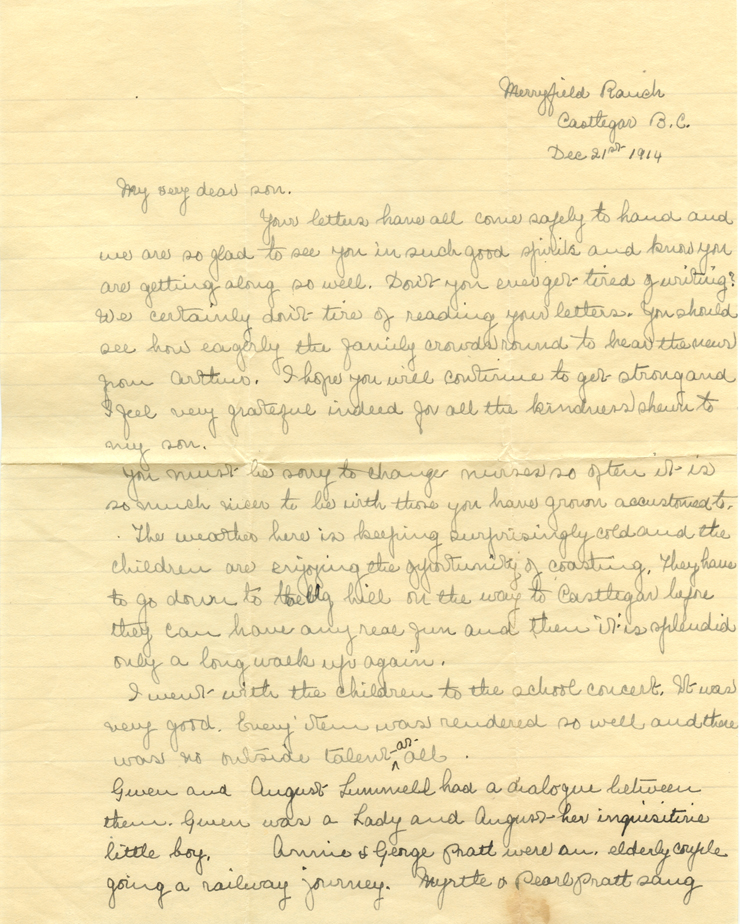 Merryfield Ranch
Castlegar B.C.
Dec 21st 1914
My very dear son.
Your letters have all come safely to hand and
we are so glad to see you in such good spirits and know you
are getting along so well. Don't you ever get tired of writing?
We certainly don't tire of reading your letters. You should
see how eagerly the family crowds round to hear the news
from Arthur. I hope you will continue to get strong and
I feel very grateful indeed for all the kindness shewn to
my son.
You must be sorry to change nurses so often it is
so much nicer to be with those you have grown accustomed to.
The weather here is keeping surprisingly cold and the
children are enjoying the oportunity of coasting. They have
to go down to the big hill on the way to Castlegar before
they can have any real fun and then it is splendid
only a long walk up again.
I went with the children to the school concert. It was
very good. Every item was rendered so well and there
was no outside talent at all.
Gwen and August had a dialogue between
them. Gwen was a Lady and August her inquisitive
little boy. Annie & George Pratt were an elderly couple
going a railway journey. Myrtle & Pearl Pratt sang